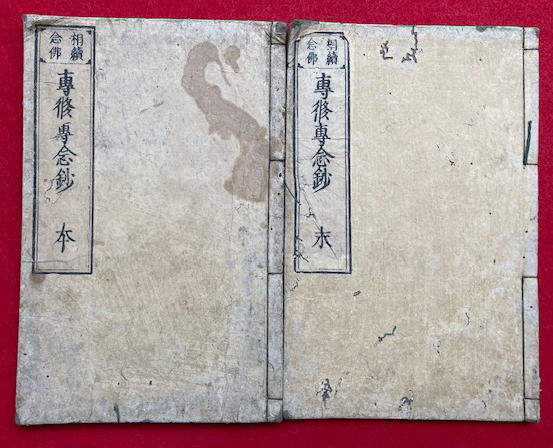 相續
念佛
專修專念鈔 本
相續
念佛
專修專念鈔 末